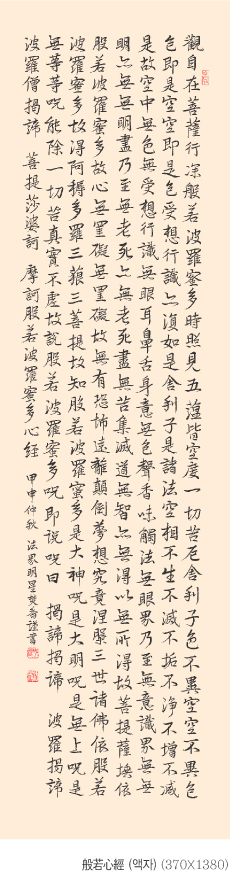 觀自在菩薩行深般若波羅蜜多時照見五蘊皆空度一切苦厄舍利子色不異空空不異色
色即是空空即是色受想行識亦復如是舍利子是諸法空相不生不滅不垢不淨不增不減
是故空中無色無受想行識無眼耳鼻舌身意無色聲香味觸法無眼界乃至無意識界無無
明亦無無明盡乃至無老死亦無老死盡無苦集滅道無智亦無得以無所得故菩提薩埵依
般若波羅蜜多故心無罣礙無罣礙故無有恐怖遠離顛倒夢想究竟涅槃三世諸佛依般若
波羅蜜多故得阿耨多羅三藐三菩提故知般若波羅蜜多是大神呪是大明呪是無上呪是
無等等呪能除一切苦真實不虛故說般若波羅蜜多呪即說呪曰 揭諦揭諦 波羅揭諦
波羅僧揭諦 菩提莎婆訶 摩訶般若波羅蜜多心經 甲申仲秋 法界明星 謹書
般若心經 (액자) (370X1380)